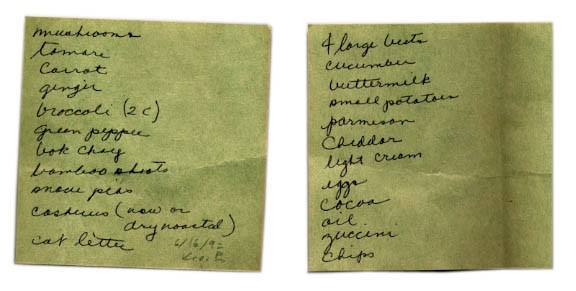 mushrooms
tamari
Carrot
ginger
broccoli (2 c)
green pepper
bok choy
bamboo shoots
snow peas
cashews (raw or
dry roasted)
cat litter
6/16/92
4 large beets
cucumber
buttermilk
small potatoes
parmesan
Cheddar
light cream
eggs
Cocoa
oil
zuccini
Chips